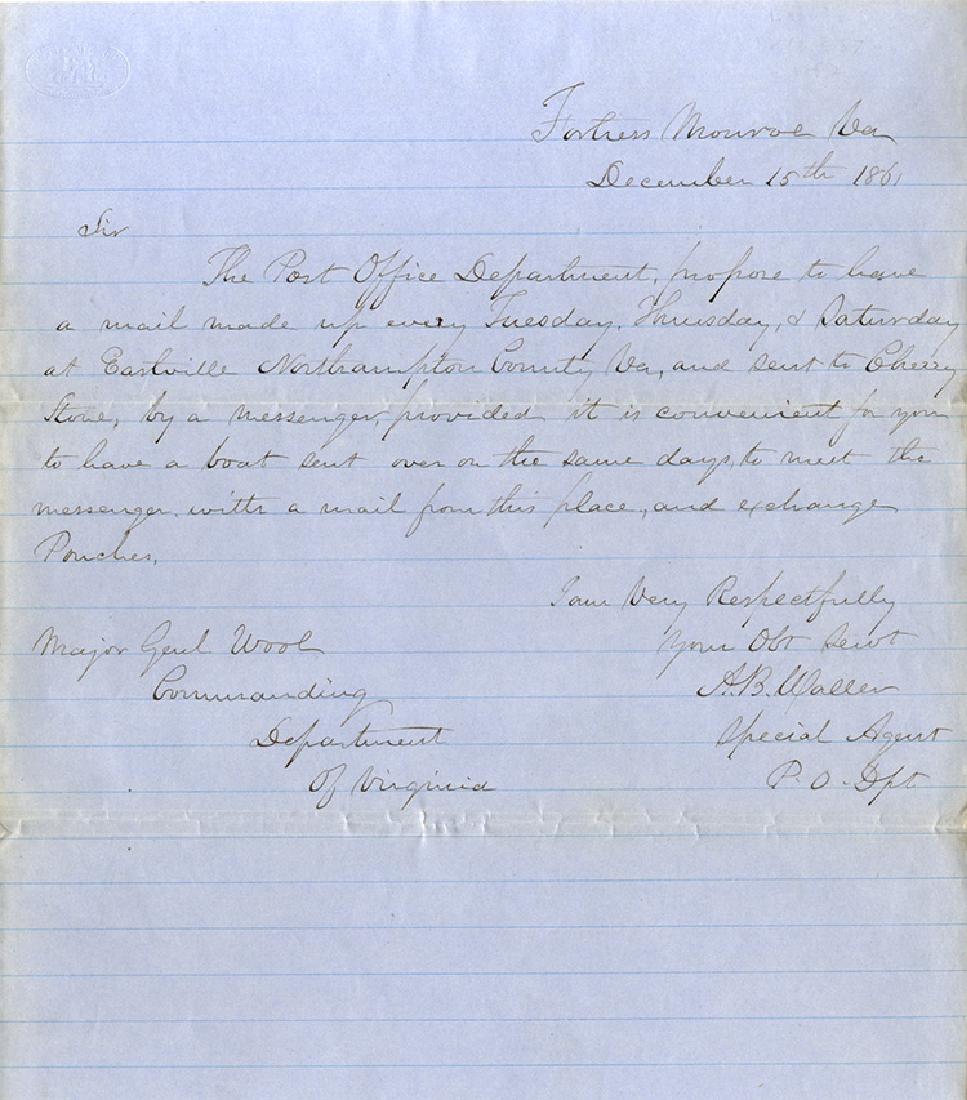 Fortress Monroe Va
December 15th 1861
Sir
The Post Office Department, propose to have
a mail made up every Tuesday, Thursday, & Saturday
at Eastville Northampton County Va, and sent to Cherry
Stone, by a messenger, provided it is convenient for you
to have a boat sent over on the same days, to meet the
messenger with a mail from this place, and exchange
Pouches.
I am Very Respectfully
Your Obt Servt
A. B. Waller
Special Agent
P. O. Dpt
Major Genl Wool
Commanding
Department
Of Virginia